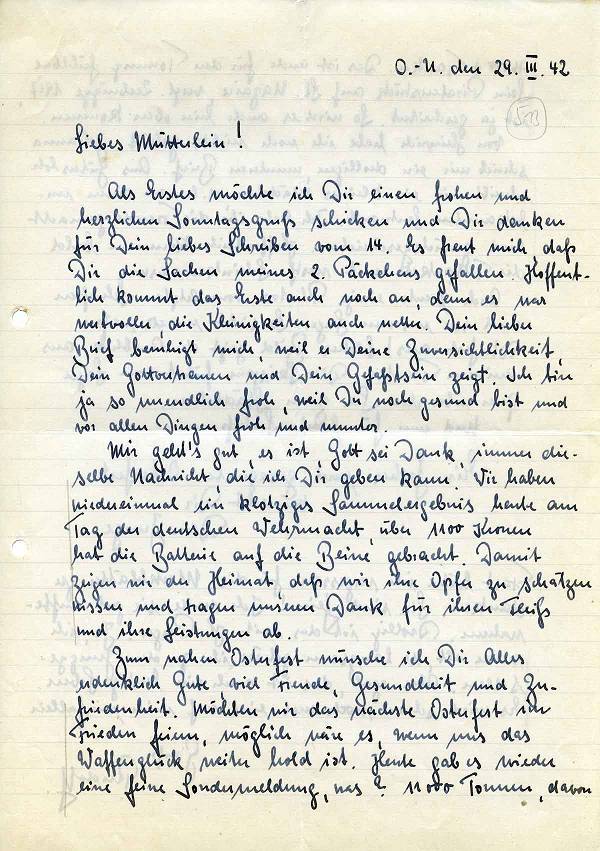 O.-U. den 29. III. 42
Liebes Mütterlein!
Als Erstes möchte ich Dir einen frohen und
herzlichen Sonntagsgruß schicken und Dir danken
für Dein liebes Schreiben vom 14. Es freut mich, daß
Dir die Sachen meines 2. Päckchens gefallen. Hoffent-
lich kommt das Erste auch noch an, denn es war
wertvoller, die Kleinigkeiten auch netter. Dein lieber
Brief beruhigt mich, weil er Deine Zuversichtlichkeit,
Dein Gottvertrauen und Dein Gefaßtsein zeigt. Ich bin
ja so unendlich froh, weil Du noch gesund bist und
vor allen Dingen froh und munter.
Mir geht's gut, es ist, Gott sei Dank, immer die-
selbe Nachricht, die ich Dir geben kann. Wir haben
wiedereinmal ein klotziges Sammelergebnis heute am
Tag der deutschen Wehrmacht, über 1100 Kronen
hat die Batterie auf die Beine gebracht. Damit
zeigen wir der Heimat, daß wir ihre Opfer zu schätzen
wissen und tragen unseren Dank für ihren Fleiß
und ihre Leistungen ab.
Zum nahen Osterfest wünsche ich Dir Alles
erdenklich Gute, viel Freude, Gesundheit und Zu-
friedenheit. Möchten wir das nächste Osterfest im
Frieden feiern, möglich wäre es, wenn uns das
Waffenglück weiter hold ist. Heute gab es wieder
eine feine Sondermeldung, was? 11000 Tonnen, davon